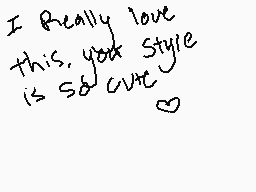 I Really love
this, your style
is so cute
♡